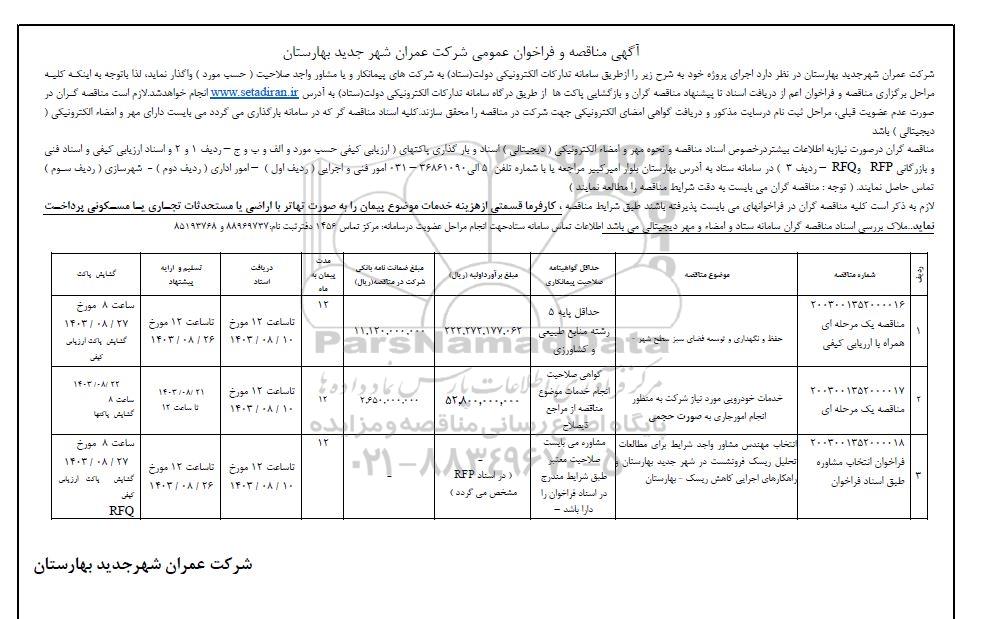 آگهی مناقصه و فراخوان عمومی شرکت عمران شهر جدید بهارستان
شرکت عمران شهرجدید بهارستان در نظر دارد اجرای پروژه خود به شرح زیر را ازطریق سامانه تدارکات الکترونیکی دولت(ستاد) به شرکت های پیمانکار و یا مشاور واجد صلاحیت ( حسب مورد ) واگذار نماید، لذا باتوجه به اینکه کلیه
مراحل برگزاری مناقصه و فراخوان اعم از دریافت اسناد تا پیشنهاد مناقصه گران و بازگشایی پاکت ها از طریق درگاه سامانه تدارکات الکترونیکی دولت(ستاد) به آدرس www.setadiran.ir انجام خواهدشد.لازم است مناقصه گران در
صورت عدم عضویت قبلی، مراحل ثبت نام درسایت مذکور و دریافت گواهی امضای الکترونیکی جهت شرکت در مناقصه را محقق سازند.کلیه اسناد مناقصه گر که در سامانه بارگذاری می گردد می بایست دارای مهر و امضاء الکترونیکی (
دیجیتالی ) باشد
مناقصه گران درصورت نیازبه اطلاعات بیشتردرخصوص اسناد مناقصه و نحوه مهر و امضاء الکترونیکی ( دیجیتالی ) اسناد و بار گذاری پاکتهای ( ارزیابی کیفی حسب مورد و الف و ب و ج – ردیف ۱ و ۲ و اسناد ارزیابی کیفی و اسناد فنی
و بازرگانی RFP وRFQ – ردیف ۳ ) در سامانه ستاد به آدرس بهارستان بلوار امیرکبیر مراجعه یا با شماره تلفن ۵ الی۳۶۸۶۱۰۹۰ – ۰۳۱ امور فنی و اجرایی ( ردیف اول ) –امور اداری ( ردیف دوم ) - شهرسازی ( ردیف سوم )
تماس حاصل نمایند. ( توجه : مناقصه گران می بایست به دقت شرایط مناقصه را مطالعه نمایند )
لازم به ذکر است کلیه مناقصه گران در فراخوانهای می بایست پذیرفته باشند طبق شرایط مناقصه ، کارفرما قسمتی ازهزینه خدمات موضوع پیمان را به صورت تهاتر با اراضی یا مستحدثات تجاری یا مسکونی پرداخت
نماید..ملاک بررسی اسناد مناقصه گران سامانه ستاد و امضاء و مهر دیجیتالی می باشد اطلاعات تماس سامانه ستادجهت انجام مراحل عضویت درسامانه: مرکز تماس ۱۴۵۶ دفترثبت نام:۸۸۹۶۹۷۳۷ و ۸۵۱۹۳۷۶۸
ردیف شماره مناقصه موضوع مناقصه حداقل گواهینامه صلاحیت پیمانکاری مبلغ برآورداولیه (ریال) مبلغ ضمانت نامه بانکی شرکت در مناقصه(ریال) مدت پیمان به ماه دریافت اسناد تسلیم و ارایه پیشنهاد گشایش پاکت
۱ ۲۰۰۳۰۰۱۳۵۲۰۰۰۰۱۶ مناقصه یک مرحله ای همراه با ارزیابی کیفی حفظ و نگهداری و توسعه فضای سبز سطح شهر - حداقل پایه ۵ رشته منابع طبیعی و کشاورزی ۲۲۲.۲۷۲.۱۷۷.۰۶۲ ۱۱,۱۲۰,۰۰۰,۰۰۰ ۱۲ تاساعت ۱۲ مورخ ۱۴۰۳/۰۸/۱۰ تاساعت ۱۲ مورخ ۱۴۰۳/۰۸/۲۶ ساعت ۸ مورخ ۱۴۰۳/۰۸/۲۷ گشایش پاکت ارزیابی کیفی
۲ ۲۰۰۳۰۰۱۳۵۲۰۰۰۰۱۷ مناقصه یک مرحله ای خدمات خودرویی مورد نیاز شرکت به منظور انجام امورجاری به صورت حجمی گواهی صلاحیت انجام خدمات موضوع مناقصه از مراجع ذیصلاح ۵۲,۸۰۰,۰۰۰,۰۰۰ ۲,۶۵۰,۰۰۰,۰۰۰ ۱۲ تاساعت ۱۲ مورخ ۱۴۰۳/۰۸/۱۰ ۱۴۰۳/۰۸/۲۱ تا ساعت ۱۲ ۱۴۰۳/۰۸/۲۲ ساعت ۸ گشایش پاکتها
۳ ۲۰۰۳۰۰۱۳۵۲۰۰۰۰۱۸ فراخوان انتخاب مشاوره طبق اسناد فراخوان انتخاب مهندس مشاور واجد شرایط برای مطالعات تحلیل ریسک فرونشست در شهر جدید بهارستان و راهکارهای اجرایی کاهش ریسک - بهارستان مشاوره می بایست صلاحیت معتبر طبق شرایط مندرج در اسناد فراخوان را دارا باشد – – ( در اسناد RFP مشخص می گردد ) – ۱۲ تاساعت ۱۲ مورخ ۱۴۰۳/۰۸/۱۰ تاساعت ۱۲ مورخ ۱۴۰۳/۰۸/۲۶ ساعت ۸ مورخ ۱۴۰۳/۰۸/۲۷ گشایش پاکت ارزیابی کیفی RFQ
ParsNamadData
مرکز فرآوری اطلاعات پارس نماد داده ها
پایگاه اطلاع رسانی مناقصه و مزایده
۰۲۱-۸۸۳۴۹۶۷۰-۵
شرکت عمران شهرجدید بهارستان